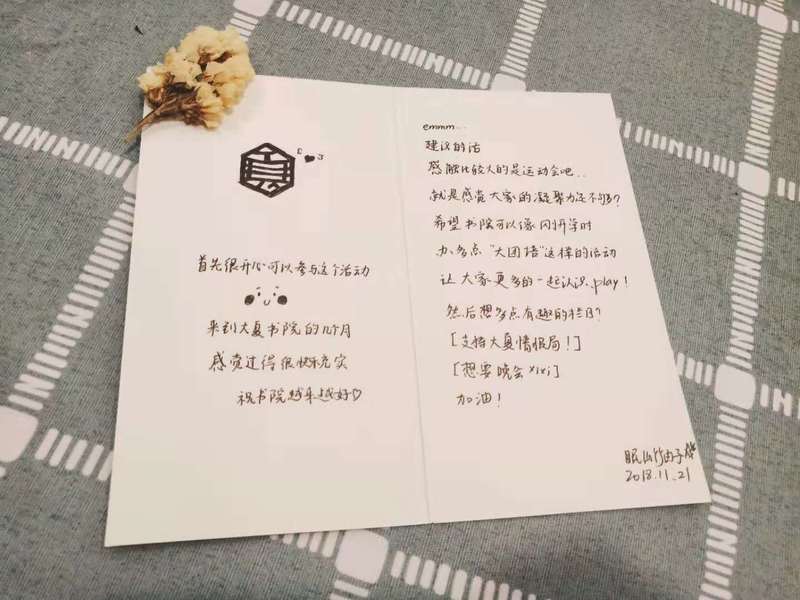 首先很开心可以参与这个活动
来到大夏书院的几个月
感觉过得很快乐充实
祝书院越来越好♡
emmm...
建议的话
感触比较大的是运动会吧..
就是感觉大家的凝聚力还不够？
希望书院可以像刚开学时
办多点“大团结”这样的活动
让大家更多的一起认识.play！
然后想多点有趣的栏目？
[支持大夏情报局！]
[想要晚会xixi]
加油！
2018.11.21